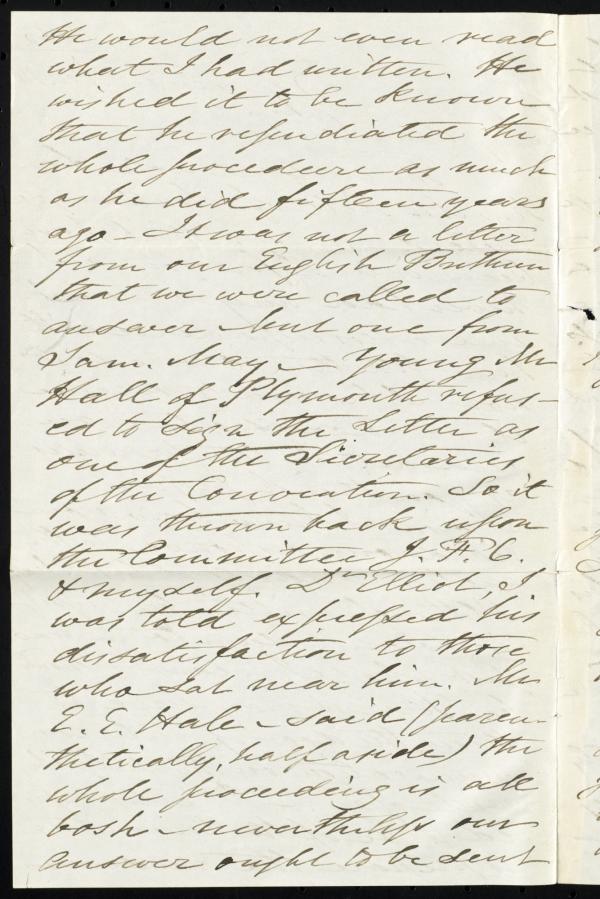 He would not even read
what I had written. He
wished it to be known
that he repudiated the
whole procedure as much
as he did fifteen years
ago – It was not a letter
from our English Brethren
that we were called to
answer – but one from
Sam. May – Young Mr
Hall of Plymouth refus-
ed to sign the Letter as
one of the Secretaries
of the Convocation. So it
was thrown back upon
the Committee J. F. C.
& myself. Dr Elliot, I
was told expressed his
dissatisfaction to those
who sat near him. Mr
E. E. Hale – said (paren-
thetically, half aside) the
whole proceeding is all
bosh – nevertheless our
answer ought to be sent